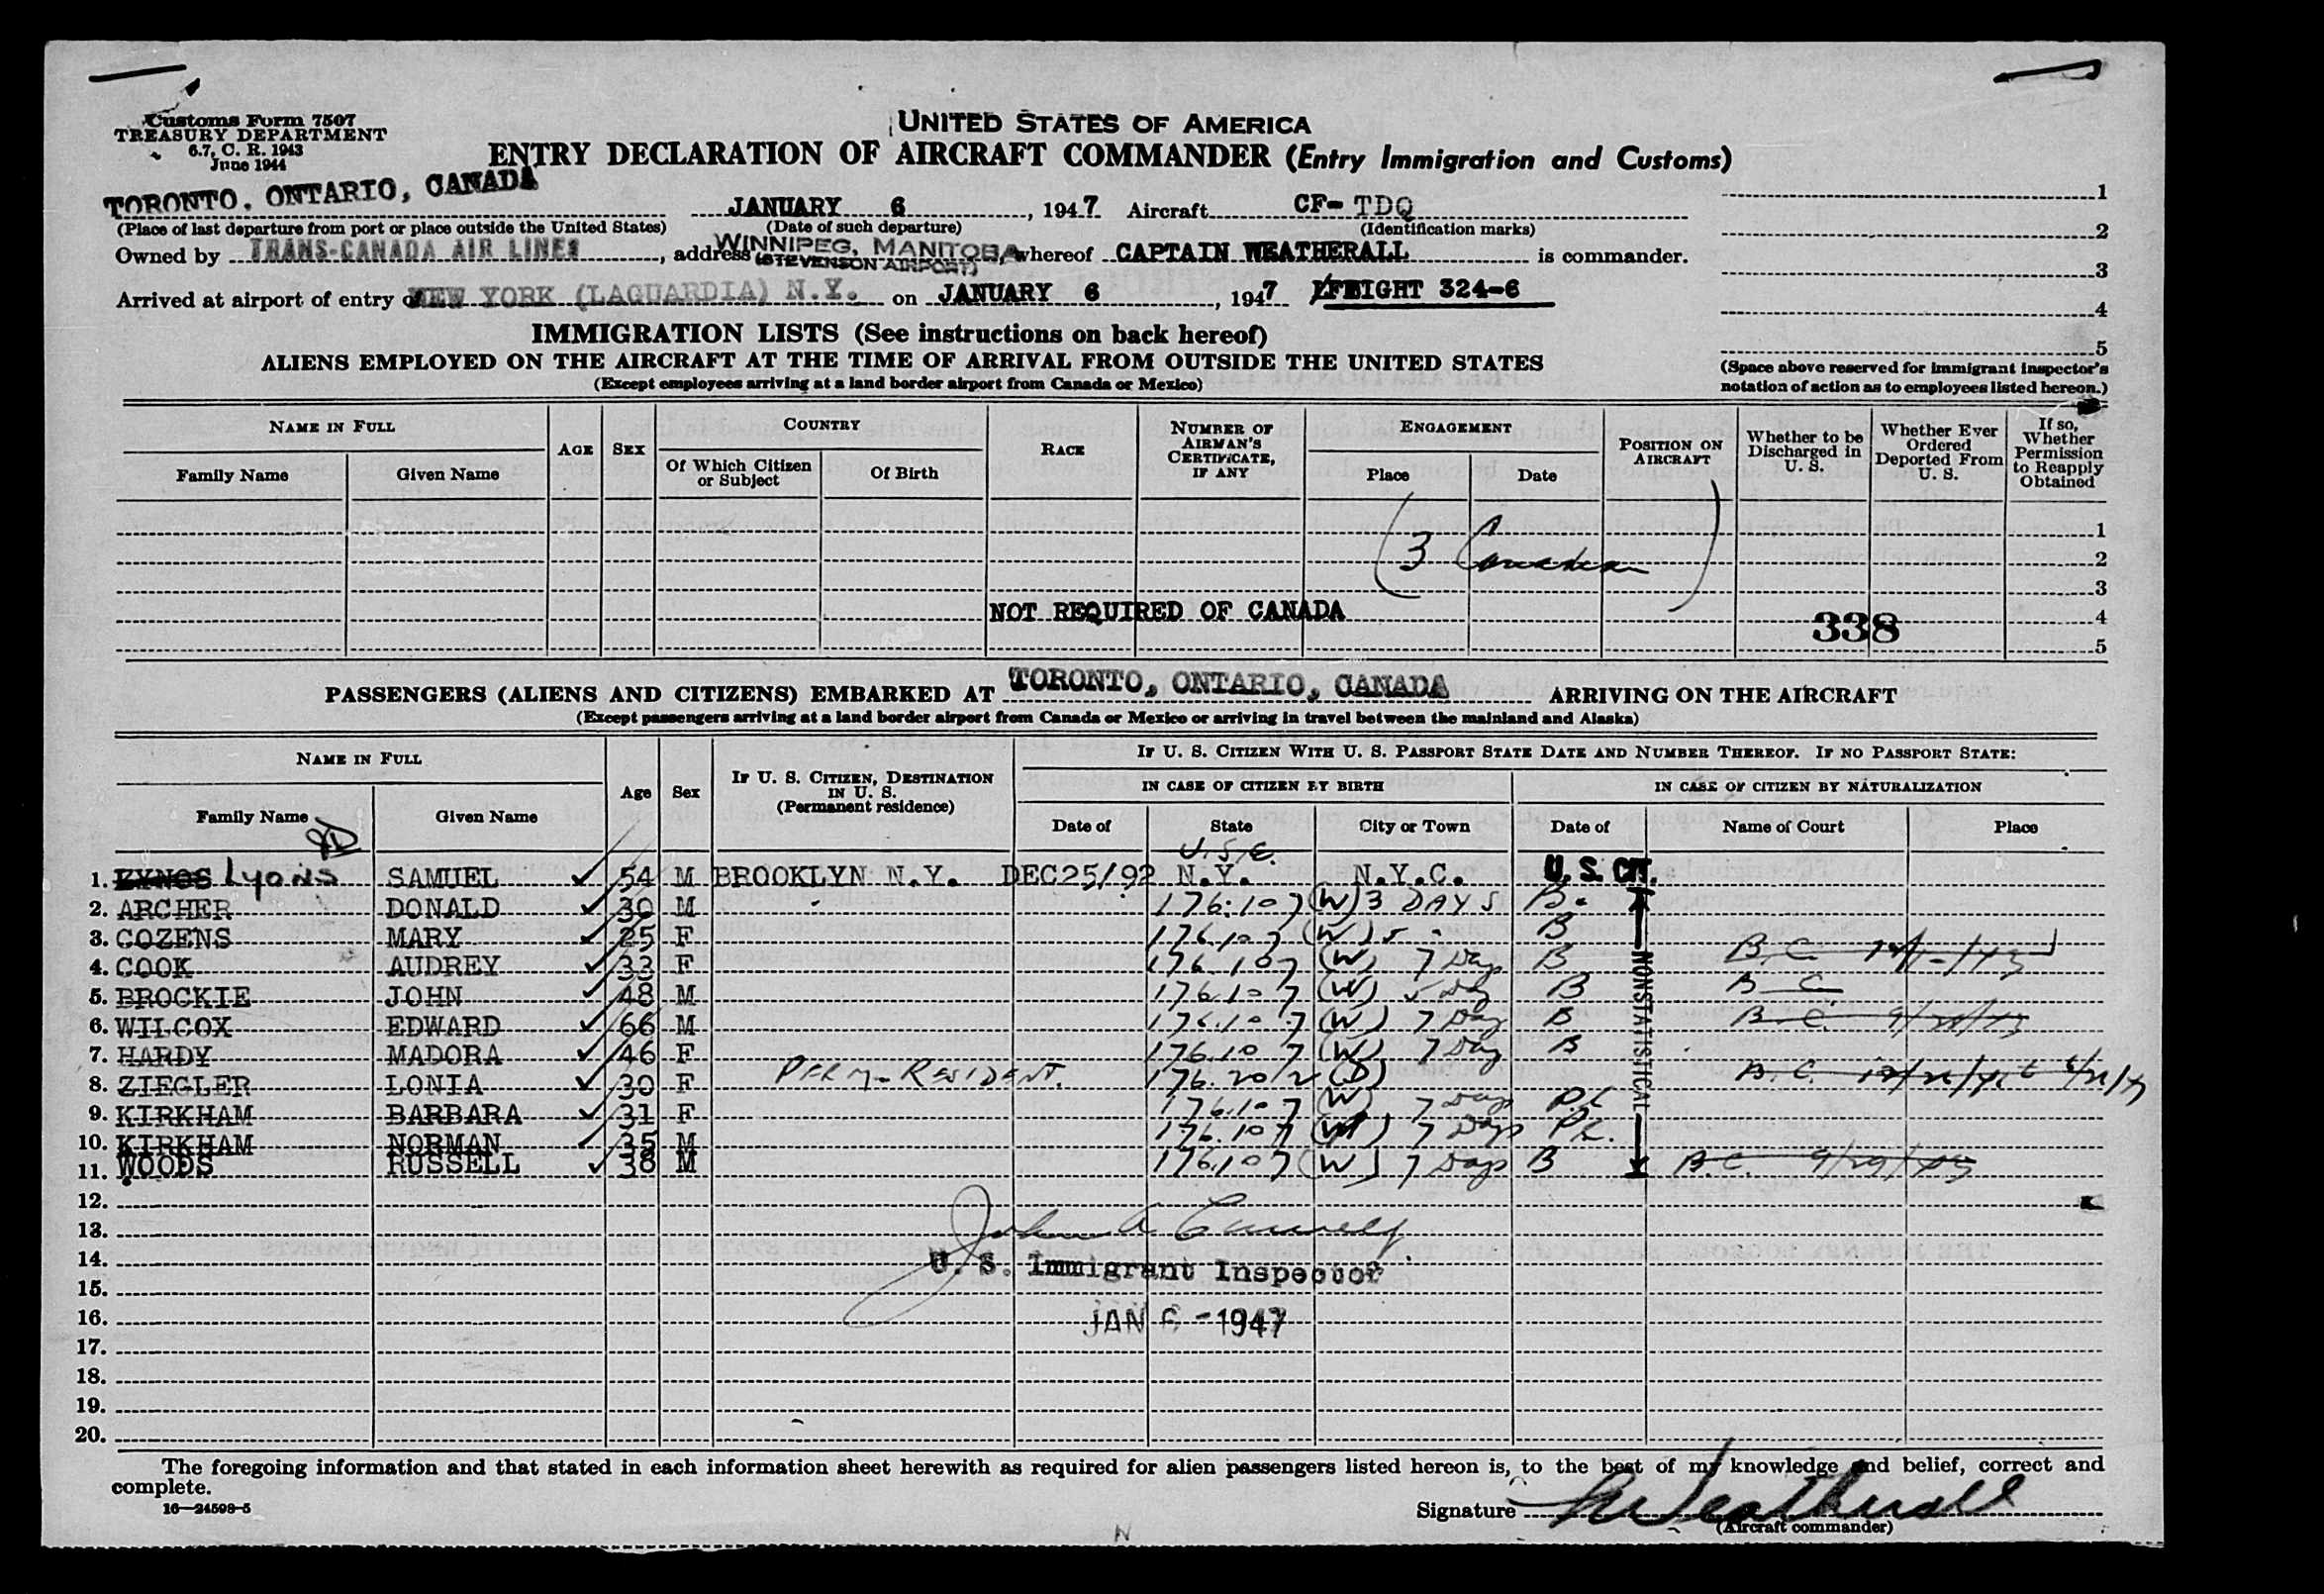 Customs Form 7507
TREASURY DEPARTMENT
6.7, C. R. 1943
June 1944
UNITED STATES OF AMERICA
ENTRY DECLARATION OF AIRCRAFT COMMANDER (Entry Immigration and Customs)
TORONTO, ONTARIO, CANADA JANUARY 6, 1947 Aircraft CF-TDQ
(Place of last departure from port or place outside the United States) (Date of such departure) (Identification marks)
Owned by TRANS-CANADA AIR LINES, address WINNIPEG, MANITOBA (STEVENSON AIRPORT) whereof CAPTAIN WEATHERALL is commander.
Arrived at airport of entry of NEW YORK (LAGUARDIA) N.Y. on JANUARY 6, 1947 FLIGHT 324-6
1
2
3
4
5
(Space above reserved for immigrant inspector's notation of action as to employees listed hereon.)
IMMIGRATION LISTS (See instructions on back hereof)
ALIENS EMPLOYED ON THE AIRCRAFT AT THE TIME OF ARRIVAL FROM OUTSIDE THE UNITED STATES
(Except employees arriving at a land border airport from Canada or Mexico)
NAME IN FULL AGE SEX COUNTRY RACE NUMBER OF AIRMAN'S CERTIFICATE, IF ANY ENGAGEMENT POSITION ON AIRCRAFT Whether to be Discharged in U. S. Whether Ever Ordered Deported From U. S. If so, Whether Permission to Reapply Obtained
Family Name Given Name Of Which Citizen or Subject Of Birth Place Date
1
(3 Canadian) 2
3
NOT REQUIRED OF CANADA 4
338
5
PASSENGERS (ALIENS AND CITIZENS) EMBARKED AT TORONTO, ONTARIO, CANADA ARRIVING ON THE AIRCRAFT
(Except passengers arriving at a land border airport from Canada or Mexico or arriving in travel between the mainland and Alaska)
NAME IN FULL Age Sex IF U. S. CITIZEN, DESTINATION IN U. S. (Permanent residence) IF U. S. CITIZEN WITH U. S. PASSPORT STATE DATE AND NUMBER THEREOF. IF NO PASSPORT STATE:
IN CASE OF CITIZEN BY BIRTH IN CASE OF CITIZEN BY NATURALIZATION
Family Name Given Name Date of State City or Town Date of Name of Court Place
1. LYNOS Lyons SAMUEL 54 M BROOKLYN N.Y. DEC25/92 N.Y. N.Y.C. U.S. CIT.
2. ARCHER DONALD 30 M 176.107 (W) 3 DAYS B.
3. COZENS MARY 25 F 176.107 (W) 5 " B
4. COOK AUDREY 33 F 176.107 (W) 7 Day B B.C.
5. BROCKIE JOHN 48 M 176.107 (W) 5 Day B B C
6. WILCOX EDWARD 66 M 176.107 (W) 7 Day B B.C.
7. HARDY MADORA 46 F 176.107 (W) 7 Day B
8. ZIEGLER LONIA 30 F PERM-RESIDENT. 176.20/2 (D) B.C.
9. KIRKHAM BARBARA 31 F 176.107 (W) 7 Days PL
10. KIRKHAM NORMAN 35 M 176.107 (W) 7 Days PL.
11. WOODS RUSSELL 38 M 176.107 (W) 7 Days B B.C. 9/29/43
NONSTATISTICAL
12.
13.
14. U. S. Immigrant Inspector
15.
16. JAN 6 - 1947
17.
18.
19.
20.
The foregoing information and that stated in each information sheet herewith as required for alien passengers listed hereon is, to the best of my knowledge and belief, correct and
complete.
16—24598-5
Signature Weatherall
(Aircraft commander)